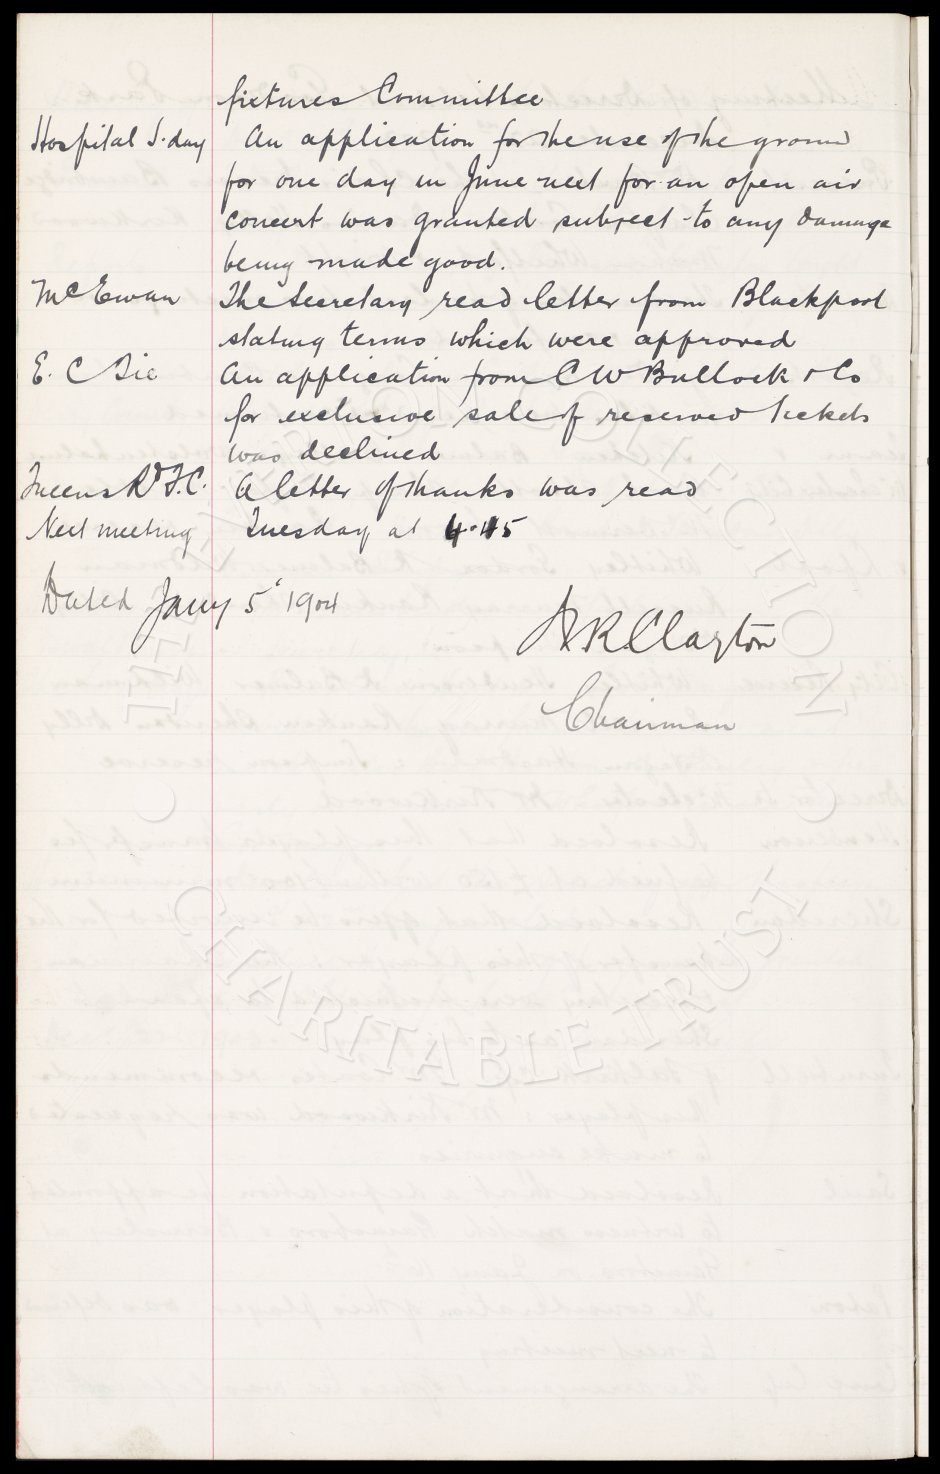 fixtures Committee
Hospital S. day An application for the use of the ground
for one day in June next for an open air
concert was granted subject to any damage
being made good.
McEwan The Secretary read letter from Blackpool
stating terms which were approved
E. C Tie An application from C W Bullock & Co
for exclusive sale of reserved tickets
was declined
Queens Rd F.C. A letter of thanks was read
Next meeting Tuesday at 4.45
Dated Jany 5 1904
A R Clayton
Chairman
THE EVERTON COLLECTION
CHARITABLE TRUST